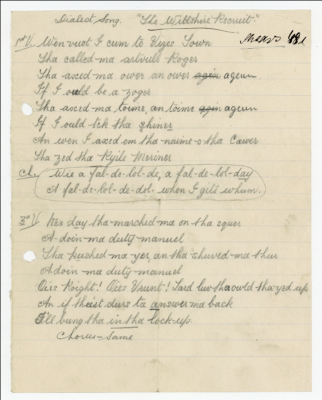 Dialect Song. "The Wiltshire Recruit."
1st V. Wen vust I cum to Vizes Town
Tha called ma artvull Roger
Tha axed ma ower an ower agin ageun
If I ould be a zoger
Tha axed ma toime, an toime agin ageun
If I ould tek tha zhiner
An wen I axed em tha naime o tha Cawer
Tha zed tha Rife Meriner
Cho. Wi a fal-de-lol-de, a fal-de-lol-day
A fal-de-lol-de-dol- when I gets whum.
2nd V. Wer day tha marched ma on tha squer
A doin ma duty manuel
Tha pushed ma yer, an tha chuved ma thur
A doin ma duty manuel
Oies Roight! Oies Vrunt! Lard luv tha ould tha yed up
An if theist dare ta answer ma back
I'll bung tha in tha lock-up.
Chorus - Same